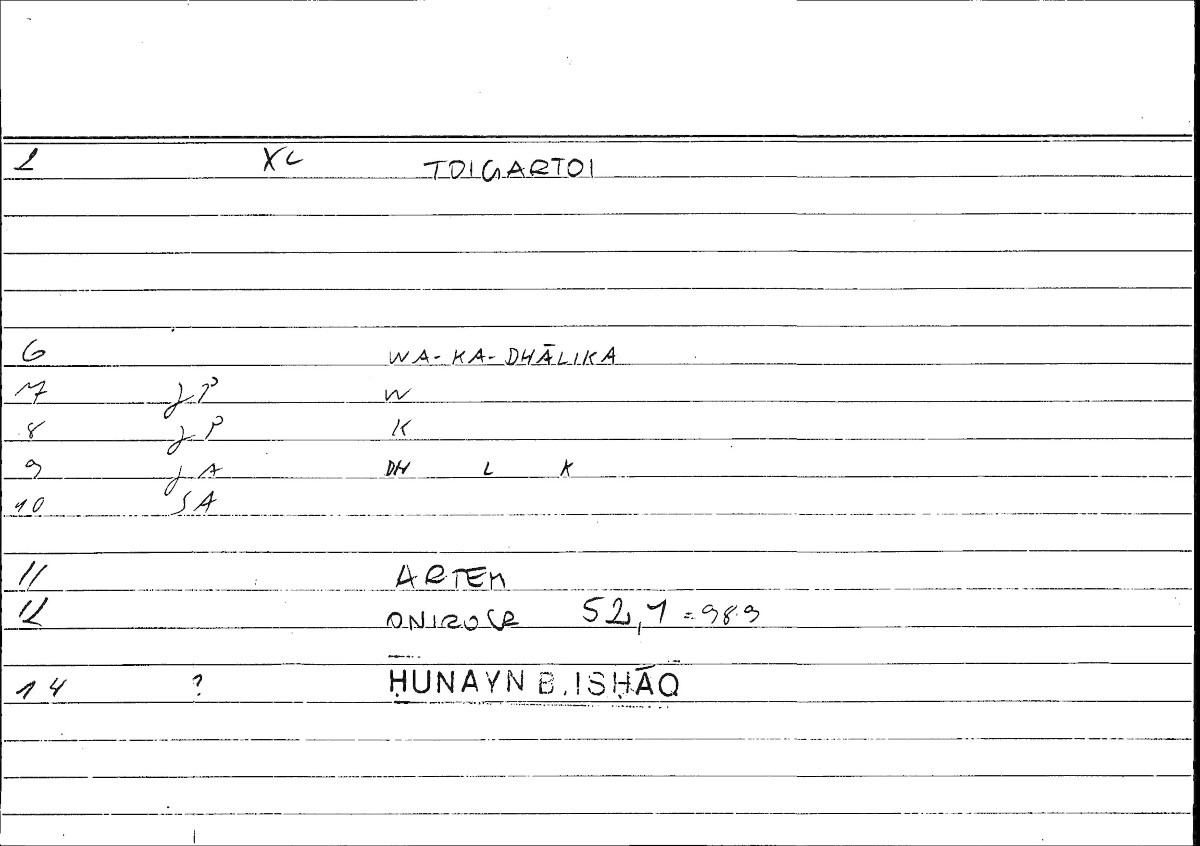 2 XL TOIGARTOI
6 WA-KA-DHĀLIKA
7 JP W
8 JP K
9 JA DH L K
10 SA
11 ARTEM
12 ONIROCR 52,1 = 98.9
14 ? ḤUNAYN B. ISḤĀQ